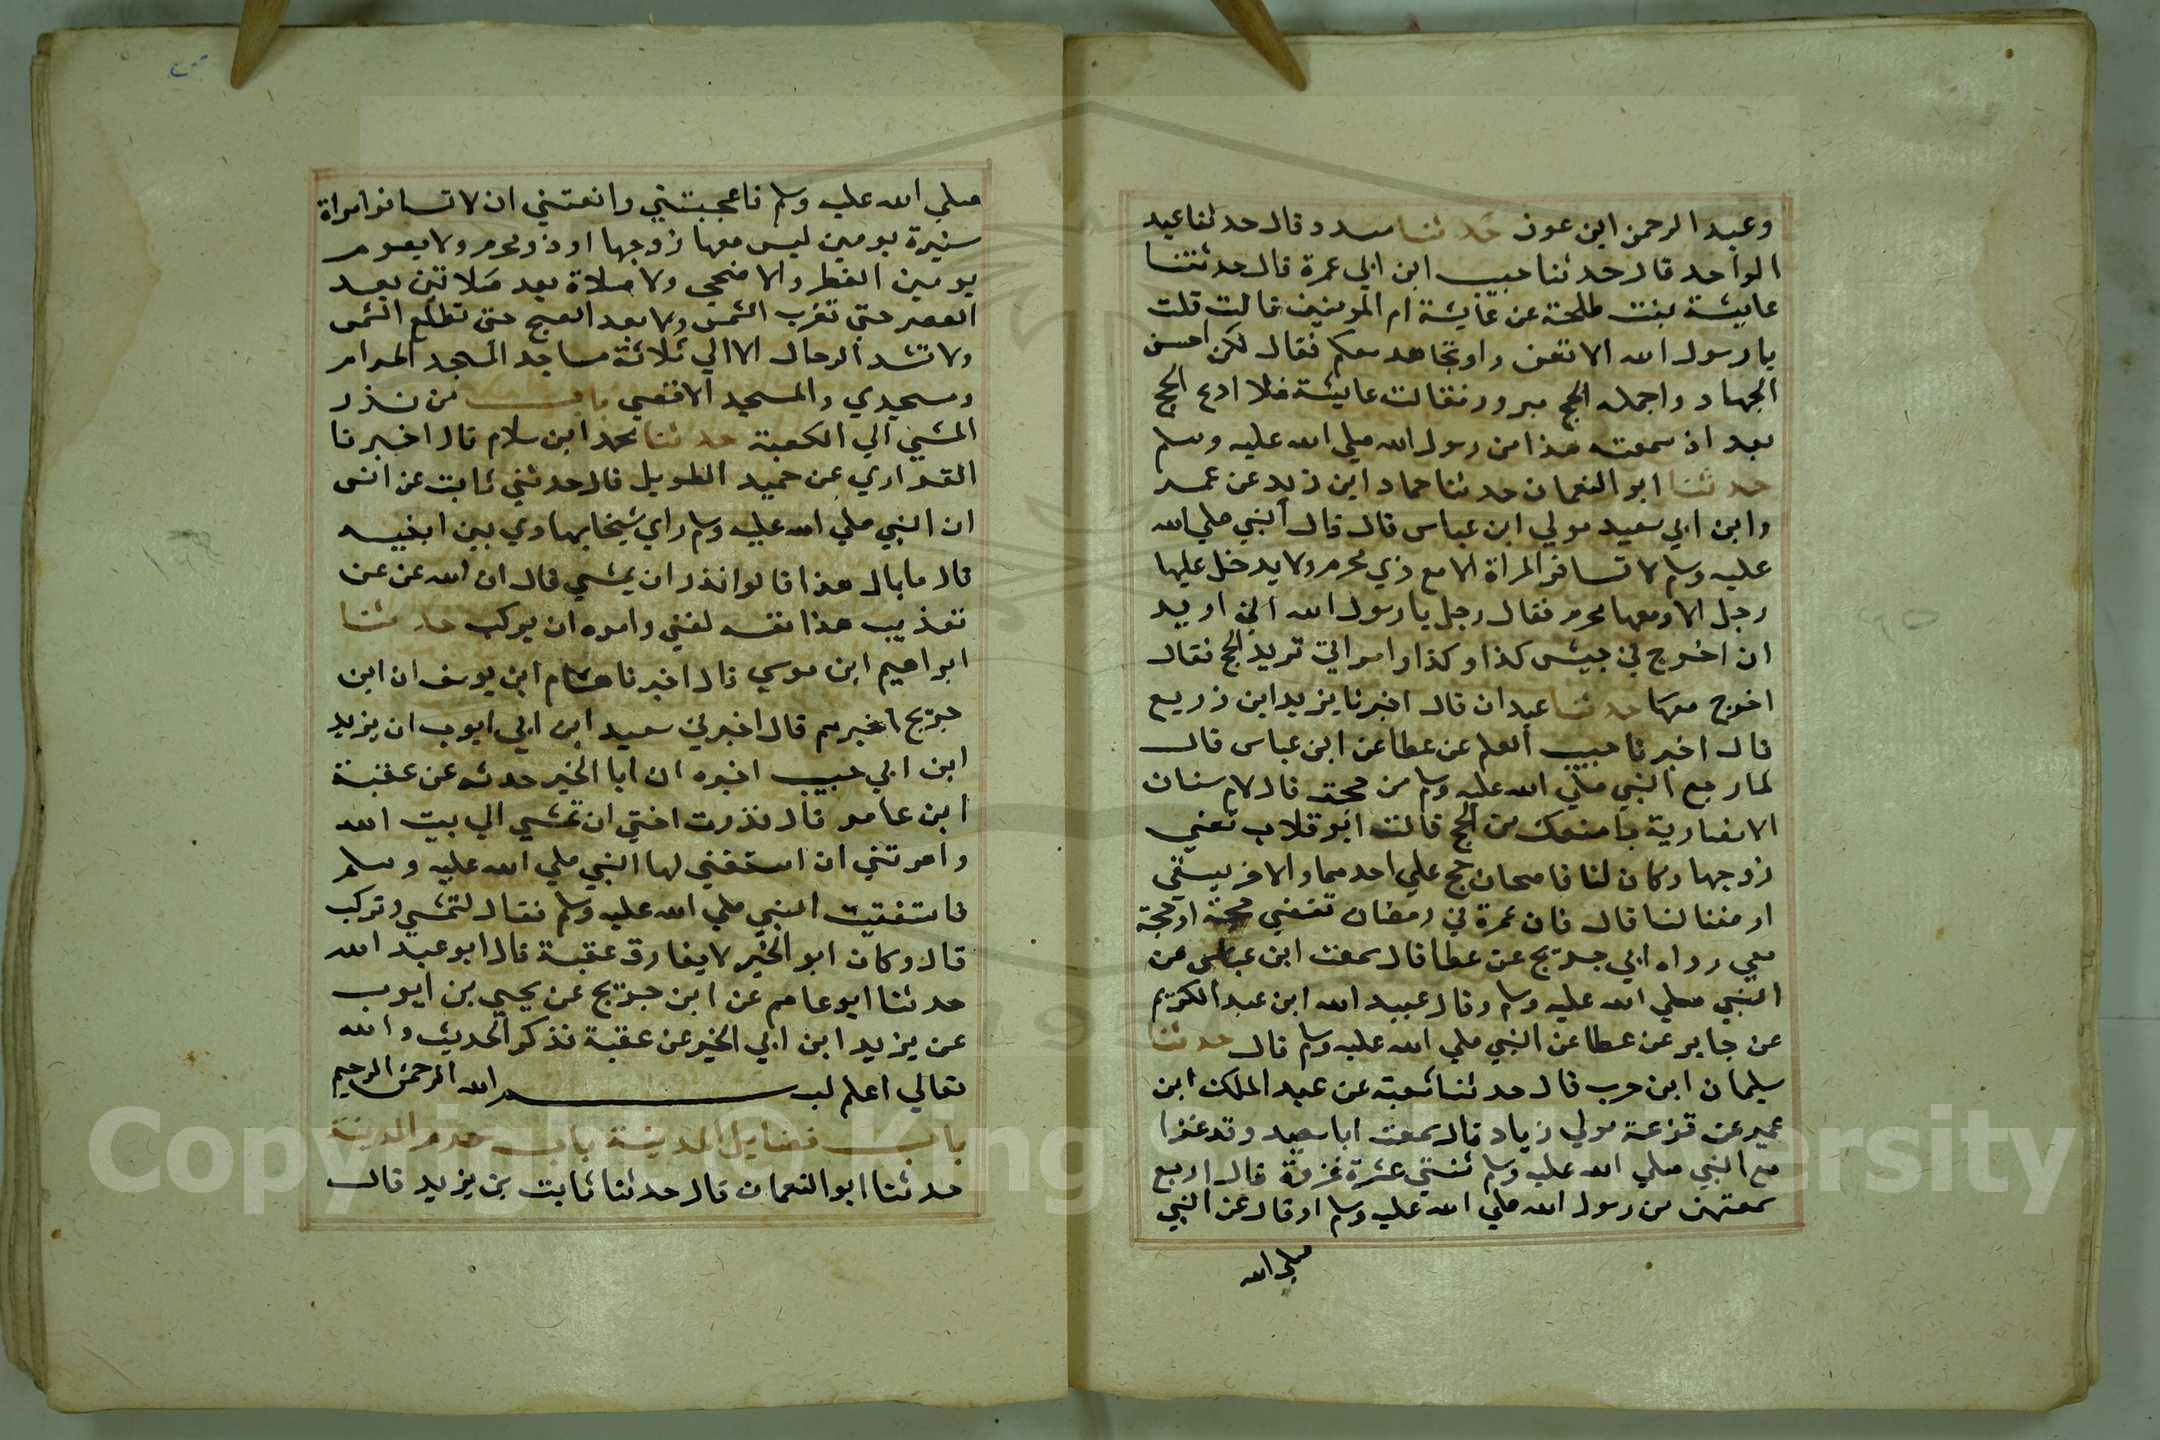 وعبد الرحمن ابن عوف حدثنا مسدد قال حدثنا عبد
الواحد قال حدثنا حبيب ابن ابي عمرة قال حدثتنا
عايشة بنت طلحة عن عايشة ام المومنين قالت قلت
يا رسول الله الا نغزوا ونجاهد معكم فقال لكن احسن
الجهاد واجمله الحج مبرور فقالت عايشة فلا ادع الحج
بعد اذ سمعته هذا من رسول الله صلي الله عليه وسلم
حدثنا ابو النعمان حدثنا حماد ابن زيد عن عمر
وابن ابي سعيد مولي ابن عباس قال قال النبي صلي الله
عليه وسلم لا تسافر المراة الا مع ذي محرم ولا يدخل عليها
رجل الا ومعها محرم فقال رجل يا رسول الله اني اريد
ان اخرج في جيش كذا وكذا وامراتي تريد الحج فقال
اخرج معها حدثنا عبدان قال اخبرنا يزيد ابن زريع
قال اخبرنا حبيب المعلم عن عطا عن ابن عباس قال
لما رجع النبي صلي الله عليه وسلم من حجته قال لام سنان
الانصارية ما منعك من الحج قالت ابو فلان تعني
زوجها وكان لنا ناضحان حج علي احدهما والاخر يسقي
ارضنا لنا قال فان عمرة في رمضان تقضي حجة او حجة
معي رواه ابي جريج عن عطا قال سمعت ابن عباس عن
النبي صلي الله عليه وسلم وقال عبيد الله ابن عبد الكريم
عن جابر عن عطا عن النبي صلي الله عليه وسلم قال حدثنا
سليمان ابن حرب قال حدثنا شعبة عن عبد الملك ابن
عمير عن قزعة مولي زياد قال سمعت ابا سعيد وقد غزا
مع النبي صلي الله عليه وسلم ثنتي عشرة غزوة قال اربع
سمعتهن من رسول الله صلي الله عليه وسلم او قال عن النبي
صلي الله
صلي الله عليه وسلم فاعجبتني وانقتني ان لا تسافر امراة
سيرة يومين ليس معها زوجها او ذو محرم ولا يصوم
يومين الفطر والاضحي ولا صلاة بعد صلاتين بعد
العصر حتي تغرب الشمس ولا بعد الصبح حتي تطلع الشمس
ولا تشد الرحال الا الي ثلاثة مساجد المسجد الحرام
ومسجدي والمسجد الاقصي باب من نذر
المشي الي الكعبة حدثنا محمد ابن سلام قال اخبرنا
الفزاري عن حميد الطويل قال حدثني ثابت عن انس
ان النبي صلي الله عليه وسلم راي شيخا يهادي بين ابنيه
قال ما بال هذا قالوا نذر ان يمشي قال ان الله عن عن
تعذيب هذا نفسه لغني وامره ان يركب حدثنا
ابراهيم ابن موسي قال اخبرنا هشام ابن يوسف ان ابن
جريج اخبرهم قال اخبرني سعيد ابن ابي ايوب ان يزيد
ابن ابي حبيب اخبره ان ابا الخير حدثه عن عقبة
ابن عامر قال نذرت اختي ان تمشي الي بيت الله
وامرتني ان استفتي لها النبي صلي الله عليه وسلم
فاستفتيت النبي صلي الله عليه وسلم فقال لتمشي وتركب
قال وكان ابو الخير لا يفارق عقبة قال ابو عبد الله
حدثنا ابو عاصم عن ابن جريج عن يحيي بن ايوب
عن يزيد ابن ابي الخير عن عقبة فذكر الحديث والله
تعالي اعلم بسم الله الرحمن الرحيم
باب فضايل المدينة باب حرم المدينة
حدثنا ابو النعمان قال حدثنا ثابت بن يزيد قال
Copyright © King Saud University